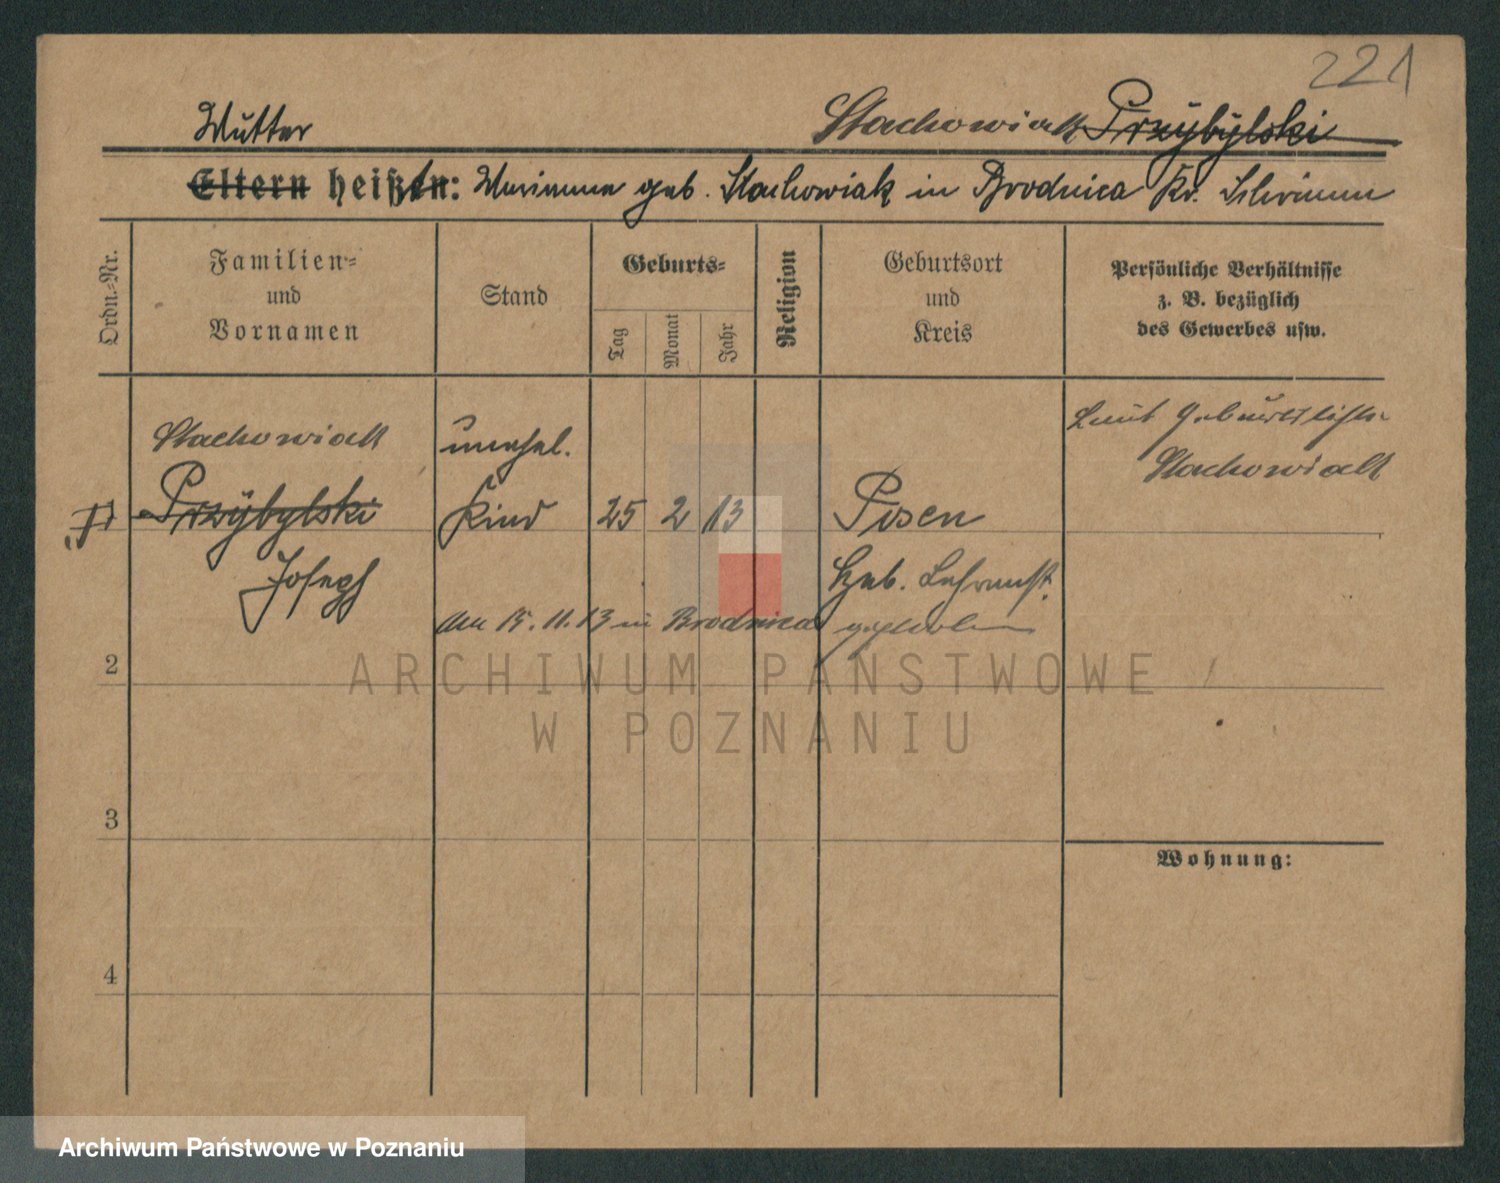 221
Stachowiak Przybylski
Mutter
Eltern heißen: Marianna geb. Stachowiak in Brodnica Kr. Schrimm
Ordn.=Nr.
Familien=
und
Vornamen
Stand
Geburts=
Tag
Monat
Jahr
Religion
Geburtsort
und
Kreis
Persönliche Verhältnisse
z. B. bezüglich
des Gewerbes usw.
Laut Geburtsliste
Stachowiak
Stachowiak
unehel.
1
Przybylski
Kind
25
2
13
Posen
Joseph
Heb. Lehranst.
den 15.11.13 in Brodnica gestorben
2
3
4
Wohnung:
ARCHIWUM PAŃSTWOWE
W POZNANIU
Archiwum Państwowe w Poznaniu